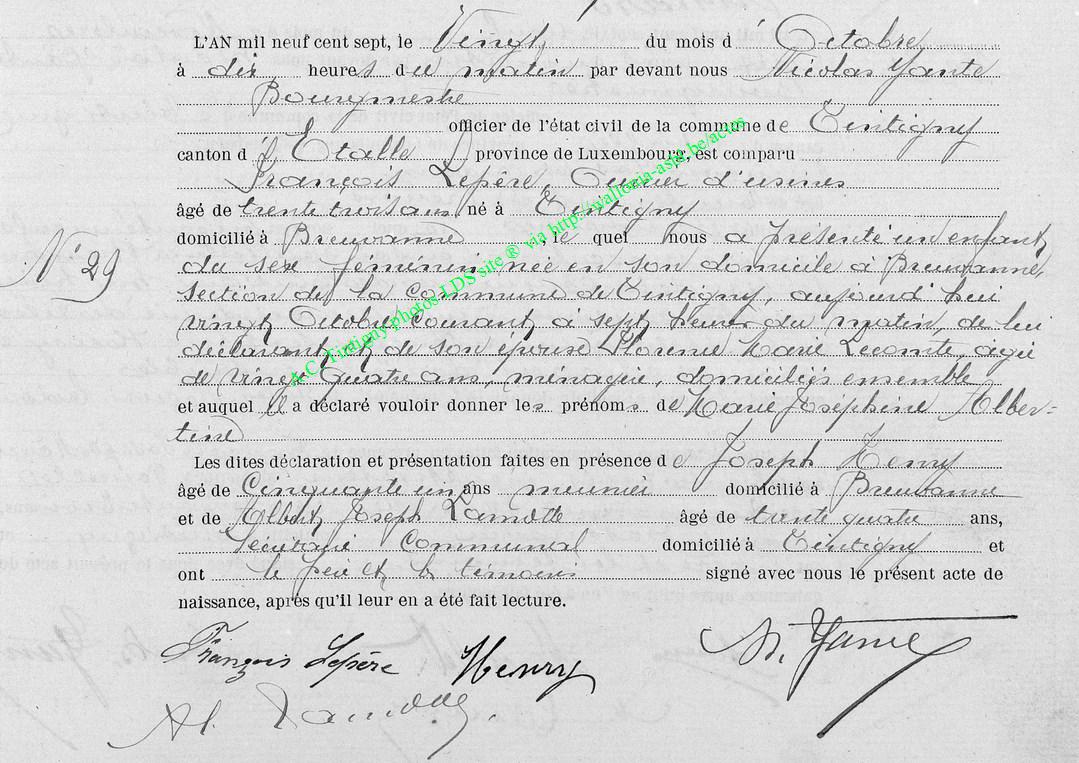 L'AN mil neuf cent sept, le Vingt du mois d' Octobre
à dix heures du matin par devant nous Nicolas Yante
Bourgmestre
officier de l'état civil de la commune de Tintigny
canton d'Etalle province de Luxembourg, est comparu
François Lepère, Ouvrier d'usines
âgé de trente trois ans né à Tintigny
domicilié à Breuvanne, le quel nous a présenté un enfant
N° 29
du sexe féminin, née en son domicile à Breuvanne,
section de la Commune de Tintigny, aujourd'hui
vingt Octobre courant à sept heures du matin, de lui
déclarant, et de son épouse Florence Marie Lecomte, agée
de vingt quatre ans, ménagère, domiciliés ensemble
et auquel il a déclaré vouloir donner les prénoms de Marie Joséphine Alber-
tine
Les dites déclaration et présentation faites en présence de Joseph Henry
âgé de Cinquante un ans meunier domicilié à Breuvanne
et de Albert Joseph Lamotte âgé de trente quatre ans,
Secrétaire Communal domicilié à Tintigny et
ont le père et les témoins signé avec nous le présent acte de
naissance, après qu'il leur en a été fait lecture.
François Lepère Henry N. Yante
Al. Lamotte
A.C. Tintigny photos LDS site ® via http://wallonia-asbl.be/actes